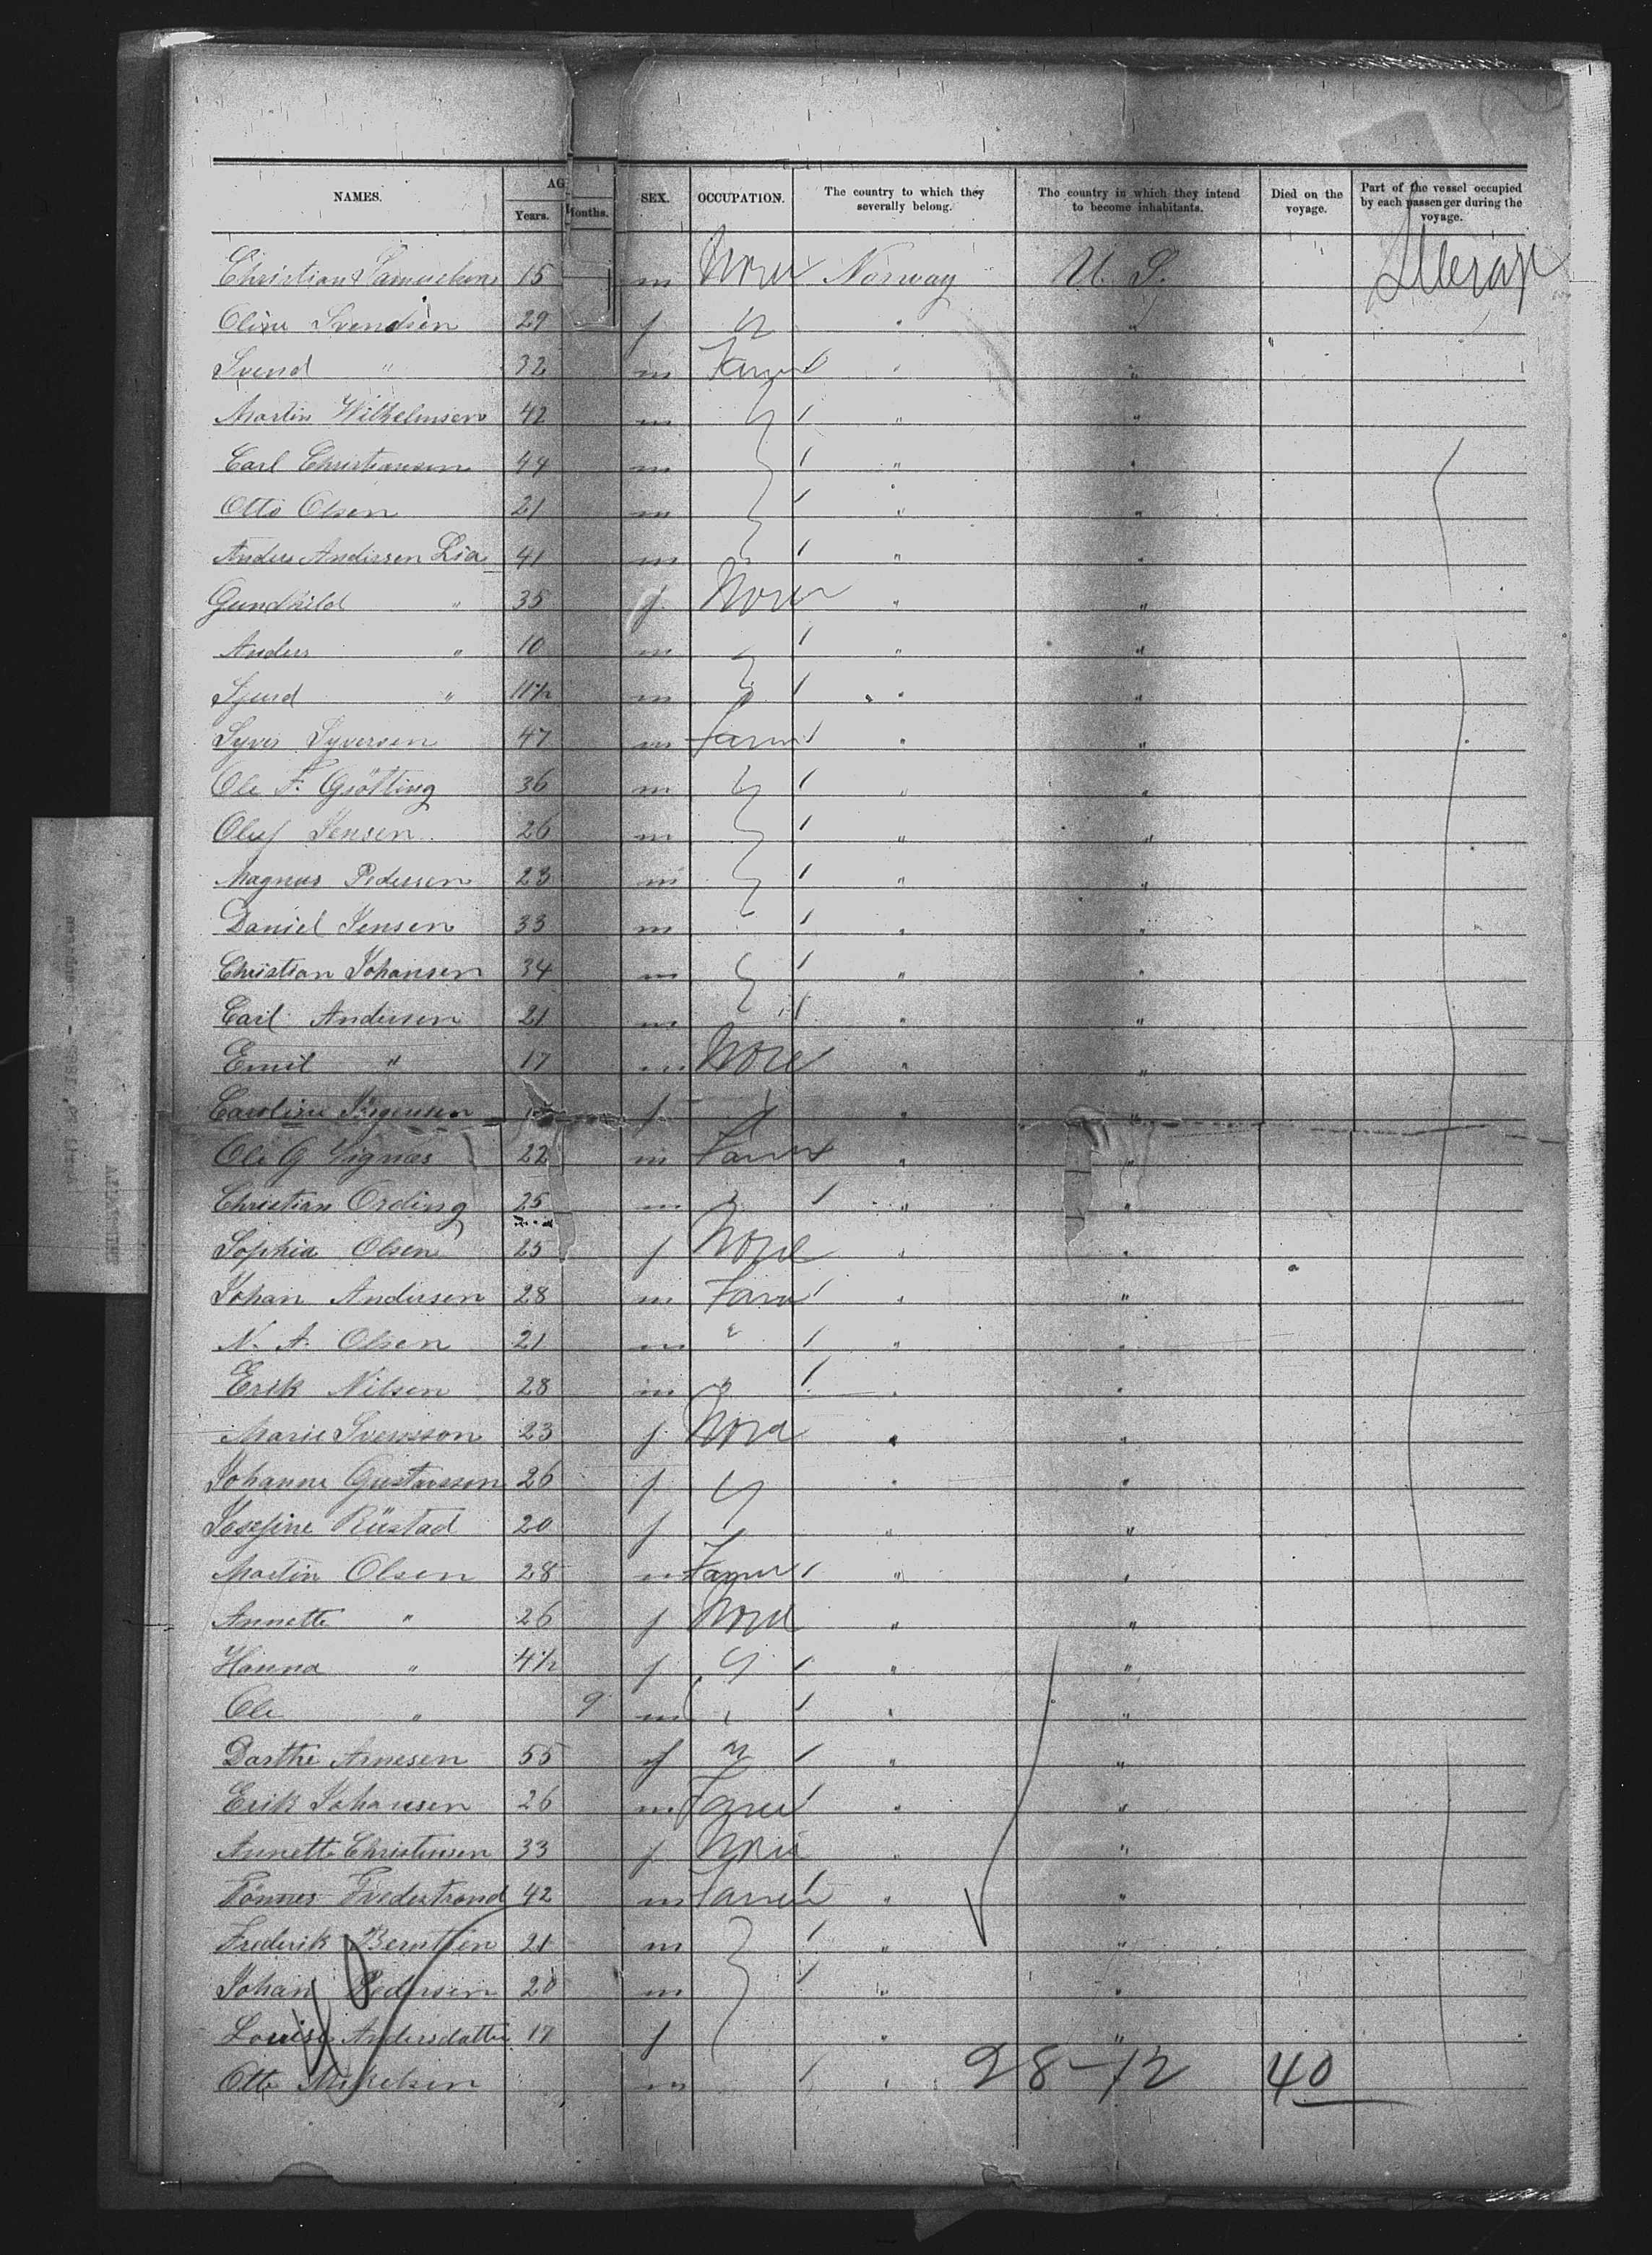 NAMES. AG SEX. OCCUPATION. The country to which they severally belong. The country in which they intend to become inhabitants. Died on the voyage. Part of the vessel occupied by each passenger during the voyage.
Years. Months.
15 m None Norway U. S. Steerage
Oline Svendsen 29 f " " "
Svend " 32 m Farmer " "
Martin Wilhelmsen 42 m " "
Carl Christiansen 44 m " "
Otto Olsen 21 m " "
Anders Andersen Lia 41 m " "
Gundhild " 35 f None " "
Anders " 10 m " "
Sjurd " 11½ m " "
Syver Syversen 47 m Farmer " "
Ole F. Grötting 36 m " "
Oluf Jensen 26 m " "
Magnus Pedersen 23 m " "
Daniel Jensen 33 m " "
Christian Johansen 34 m " "
Carl Andersen 21 m " "
Emil " 17 m None " "
Caroline Jörgensen f " "
Ole G 22 m Farmer " "
Christian Ording 25 m " "
Sophia Olsen 25 f None " "
Johan Andersen 28 m Farm " "
N. A. Olsen 21 m " " "
Erik Nilsen 28 m " " "
Marie Svensson 23 f None " "
Johanne Gustavssen 26 f " "
Josefine Rustad 20 f " "
Martin Olsen 28 m Farmer " "
Annette " 26 f None " "
Hanna " 4½ f " "
Ole " 9 m " "
Dorthe Arnesen 55 f " " "
Erik Johansen 26 m Farmer " "
Annette Christensen 33 f None " "
Tönnes 42 m Farmer " "
Frederik Berntsen 21 m " "
Johan Pedersen 20 m " "
Louise Andersdatter 17 f " "
Otto Mikelsen m " 28-12 40